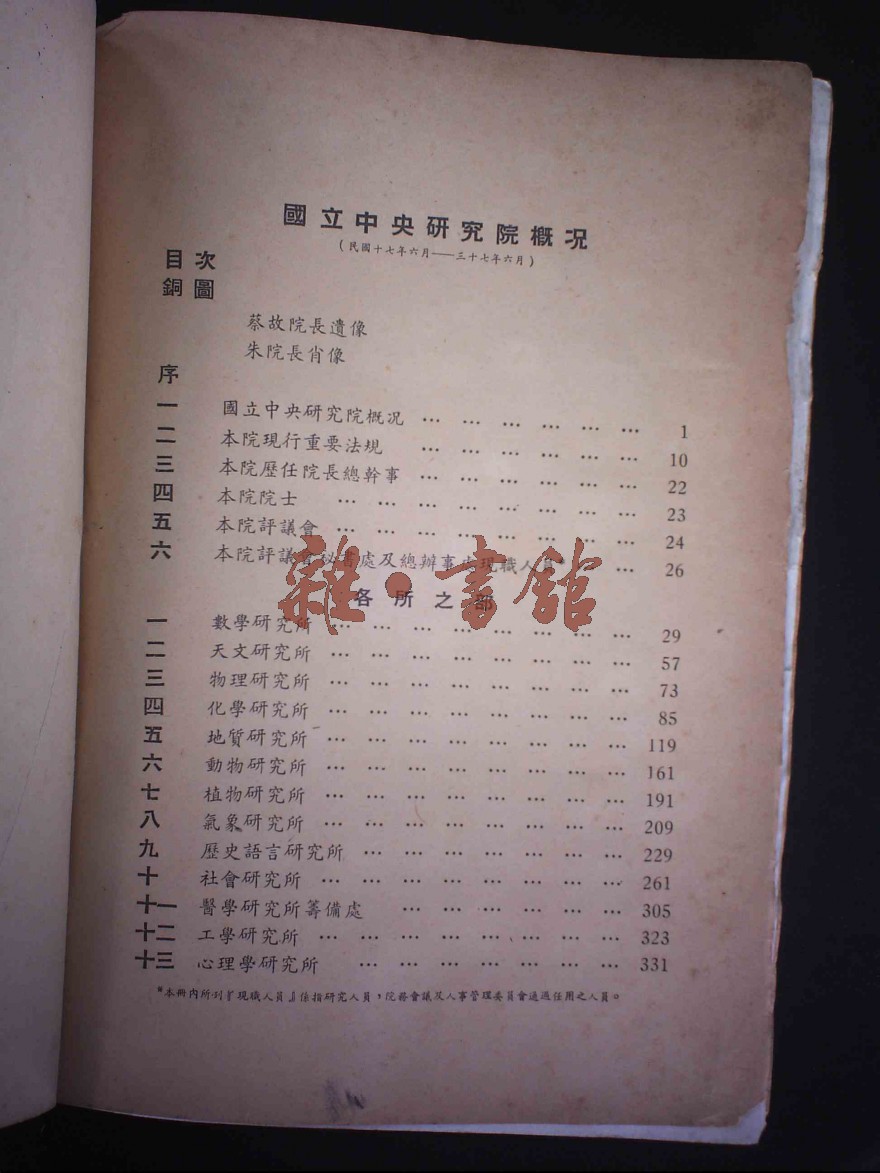 國立中央研究院概况
(民國十七年六月——三十七年六月)
目次
銅圖
蔡故院長遺像
朱院長肖像
序
一 國立中央研究院概况 … … … … … … 1
二 本院現行重要法規 … … … … … … 10
三 本院歷任院長總幹事 … … … … … … 22
四 本院院士 … … … … … … … … 23
五 本院評議會 … … … … … … … … 24
六 本院評議會秘書處及總辦事處現職人員* … 26
各所之部
一 數學研究所 … … … … … … … … 29
二 天文研究所 … … … … … … … … 57
三 物理研究所 … … … … … … … … 73
四 化學研究所 … … … … … … … … 85
五 地質研究所 … … … … … … … … 119
六 動物研究所 … … … … … … … … 161
七 植物研究所 … … … … … … … … 191
八 氣象研究所 … … … … … … … … 209
九 歷史語言研究所 … … … … … … … 229
十 社會研究所 … … … … … … … … 261
十一 醫學研究所籌備處 … … … … … … 305
十二 工學研究所 … … … … … … … … 323
十三 心理學研究所 … … … … … … … 331
*本冊内所列『現職人員』係指研究人員,院務會議及人事管理委員會通過任用之人員。
雜·書館